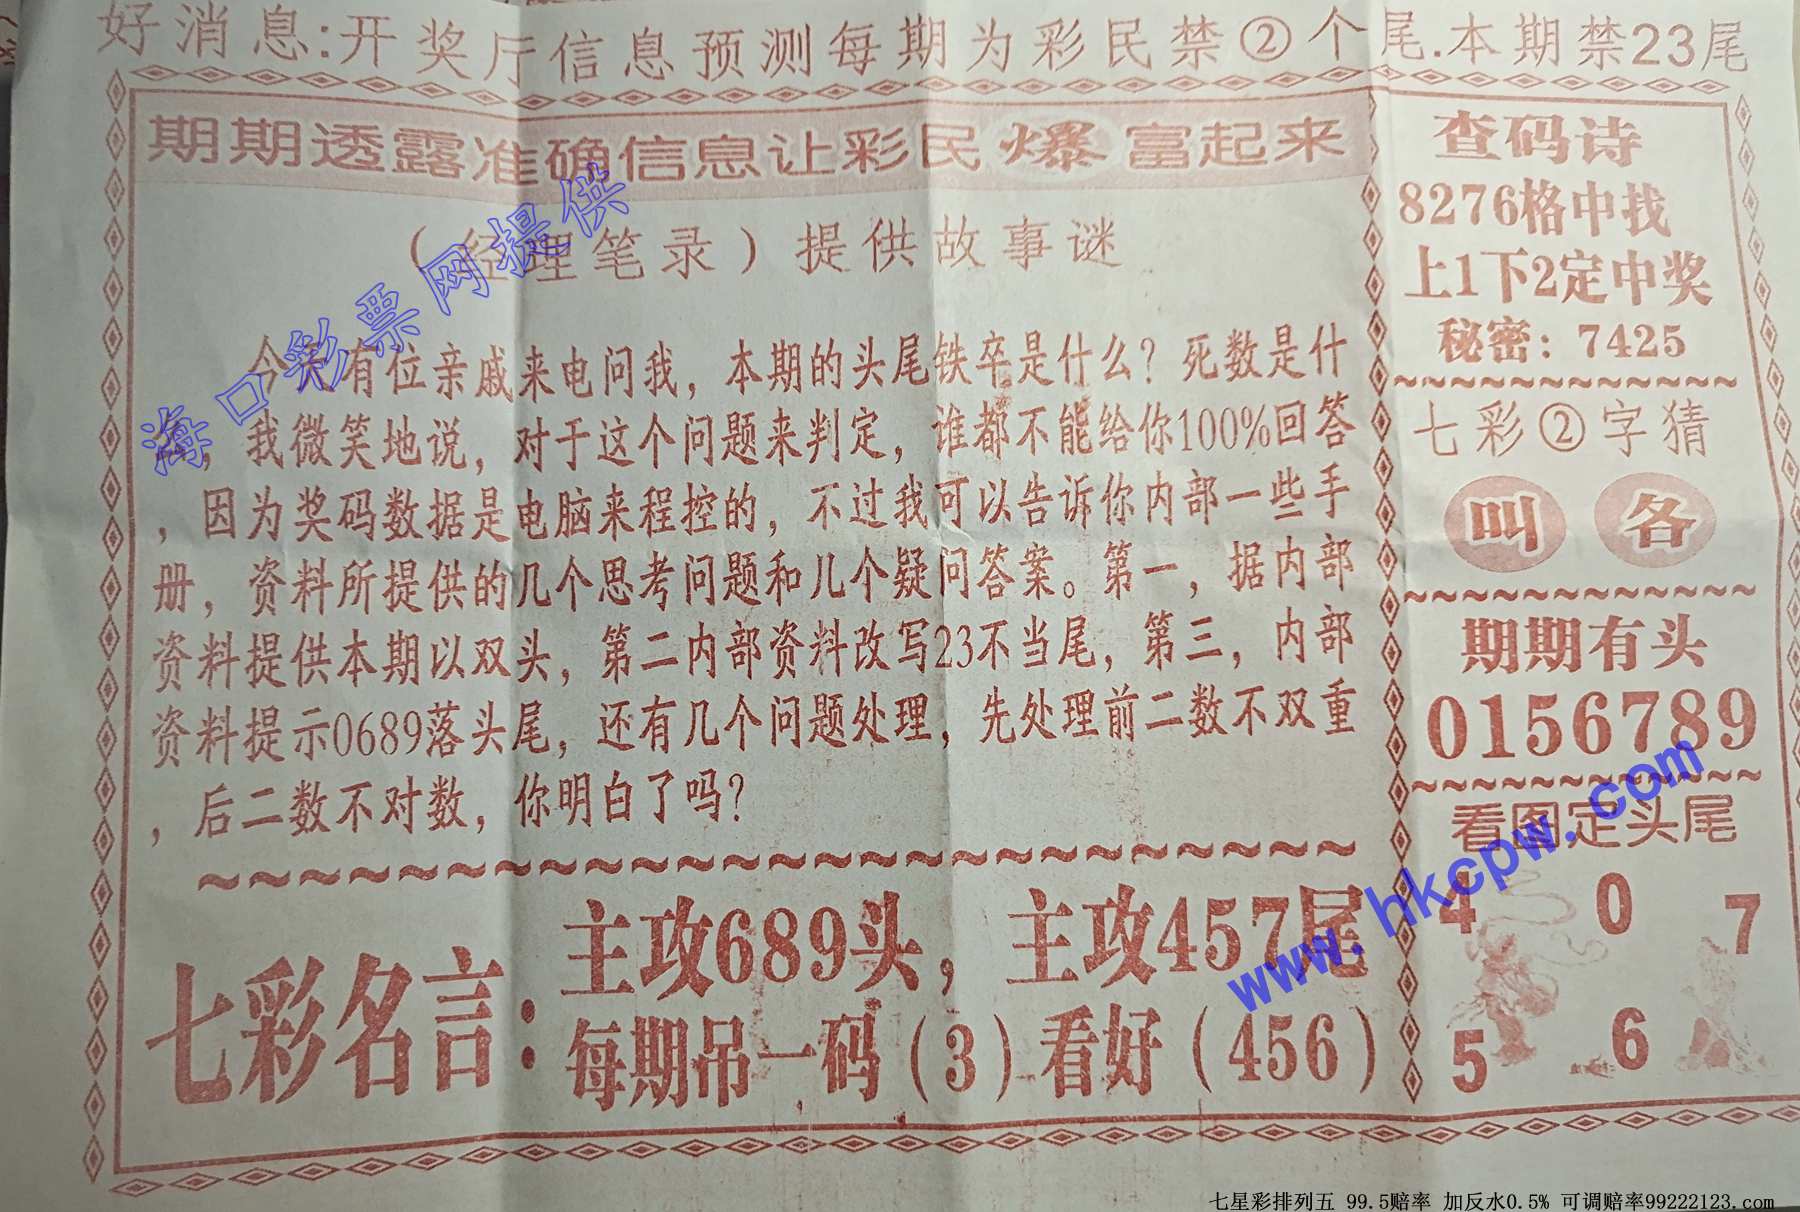 好消息:开奖厅信息预测每期为彩民禁②个尾.本期禁23尾
期期透露准确信息让彩民爆富起来
（经理笔录）提供故事谜
今天有位亲戚来电问我，本期的头尾铁卒是什么？死数是什
，我微笑地说，对于这个问题来判定，谁都不能给你100%回答
，因为奖码数据是电脑来程控的，不过我可以告诉你内部一些手
册，资料所提供的几个思考问题和几个疑问答案。第一，据内部
资料提供本期以双头，第二内部资料改写23不当尾，第三，内部
资料提示0689落头尾，还有几个问题处理，先处理前二数不双重
，后二数不对数，你明白了吗？
七彩名言：
主攻689头，主攻457尾
每期吊一码（3）看好（456）
查码诗
8276格中找
上1下2定中奖
秘密：7425
七彩②字猜
叫 各
期期有头
0156789
看图定头尾
4 0 7
5 6
海口彩票网提供
www.hkcpw.com
七星彩排列五 99.5赔率 加反水0.5% 可调赔率99222123.com